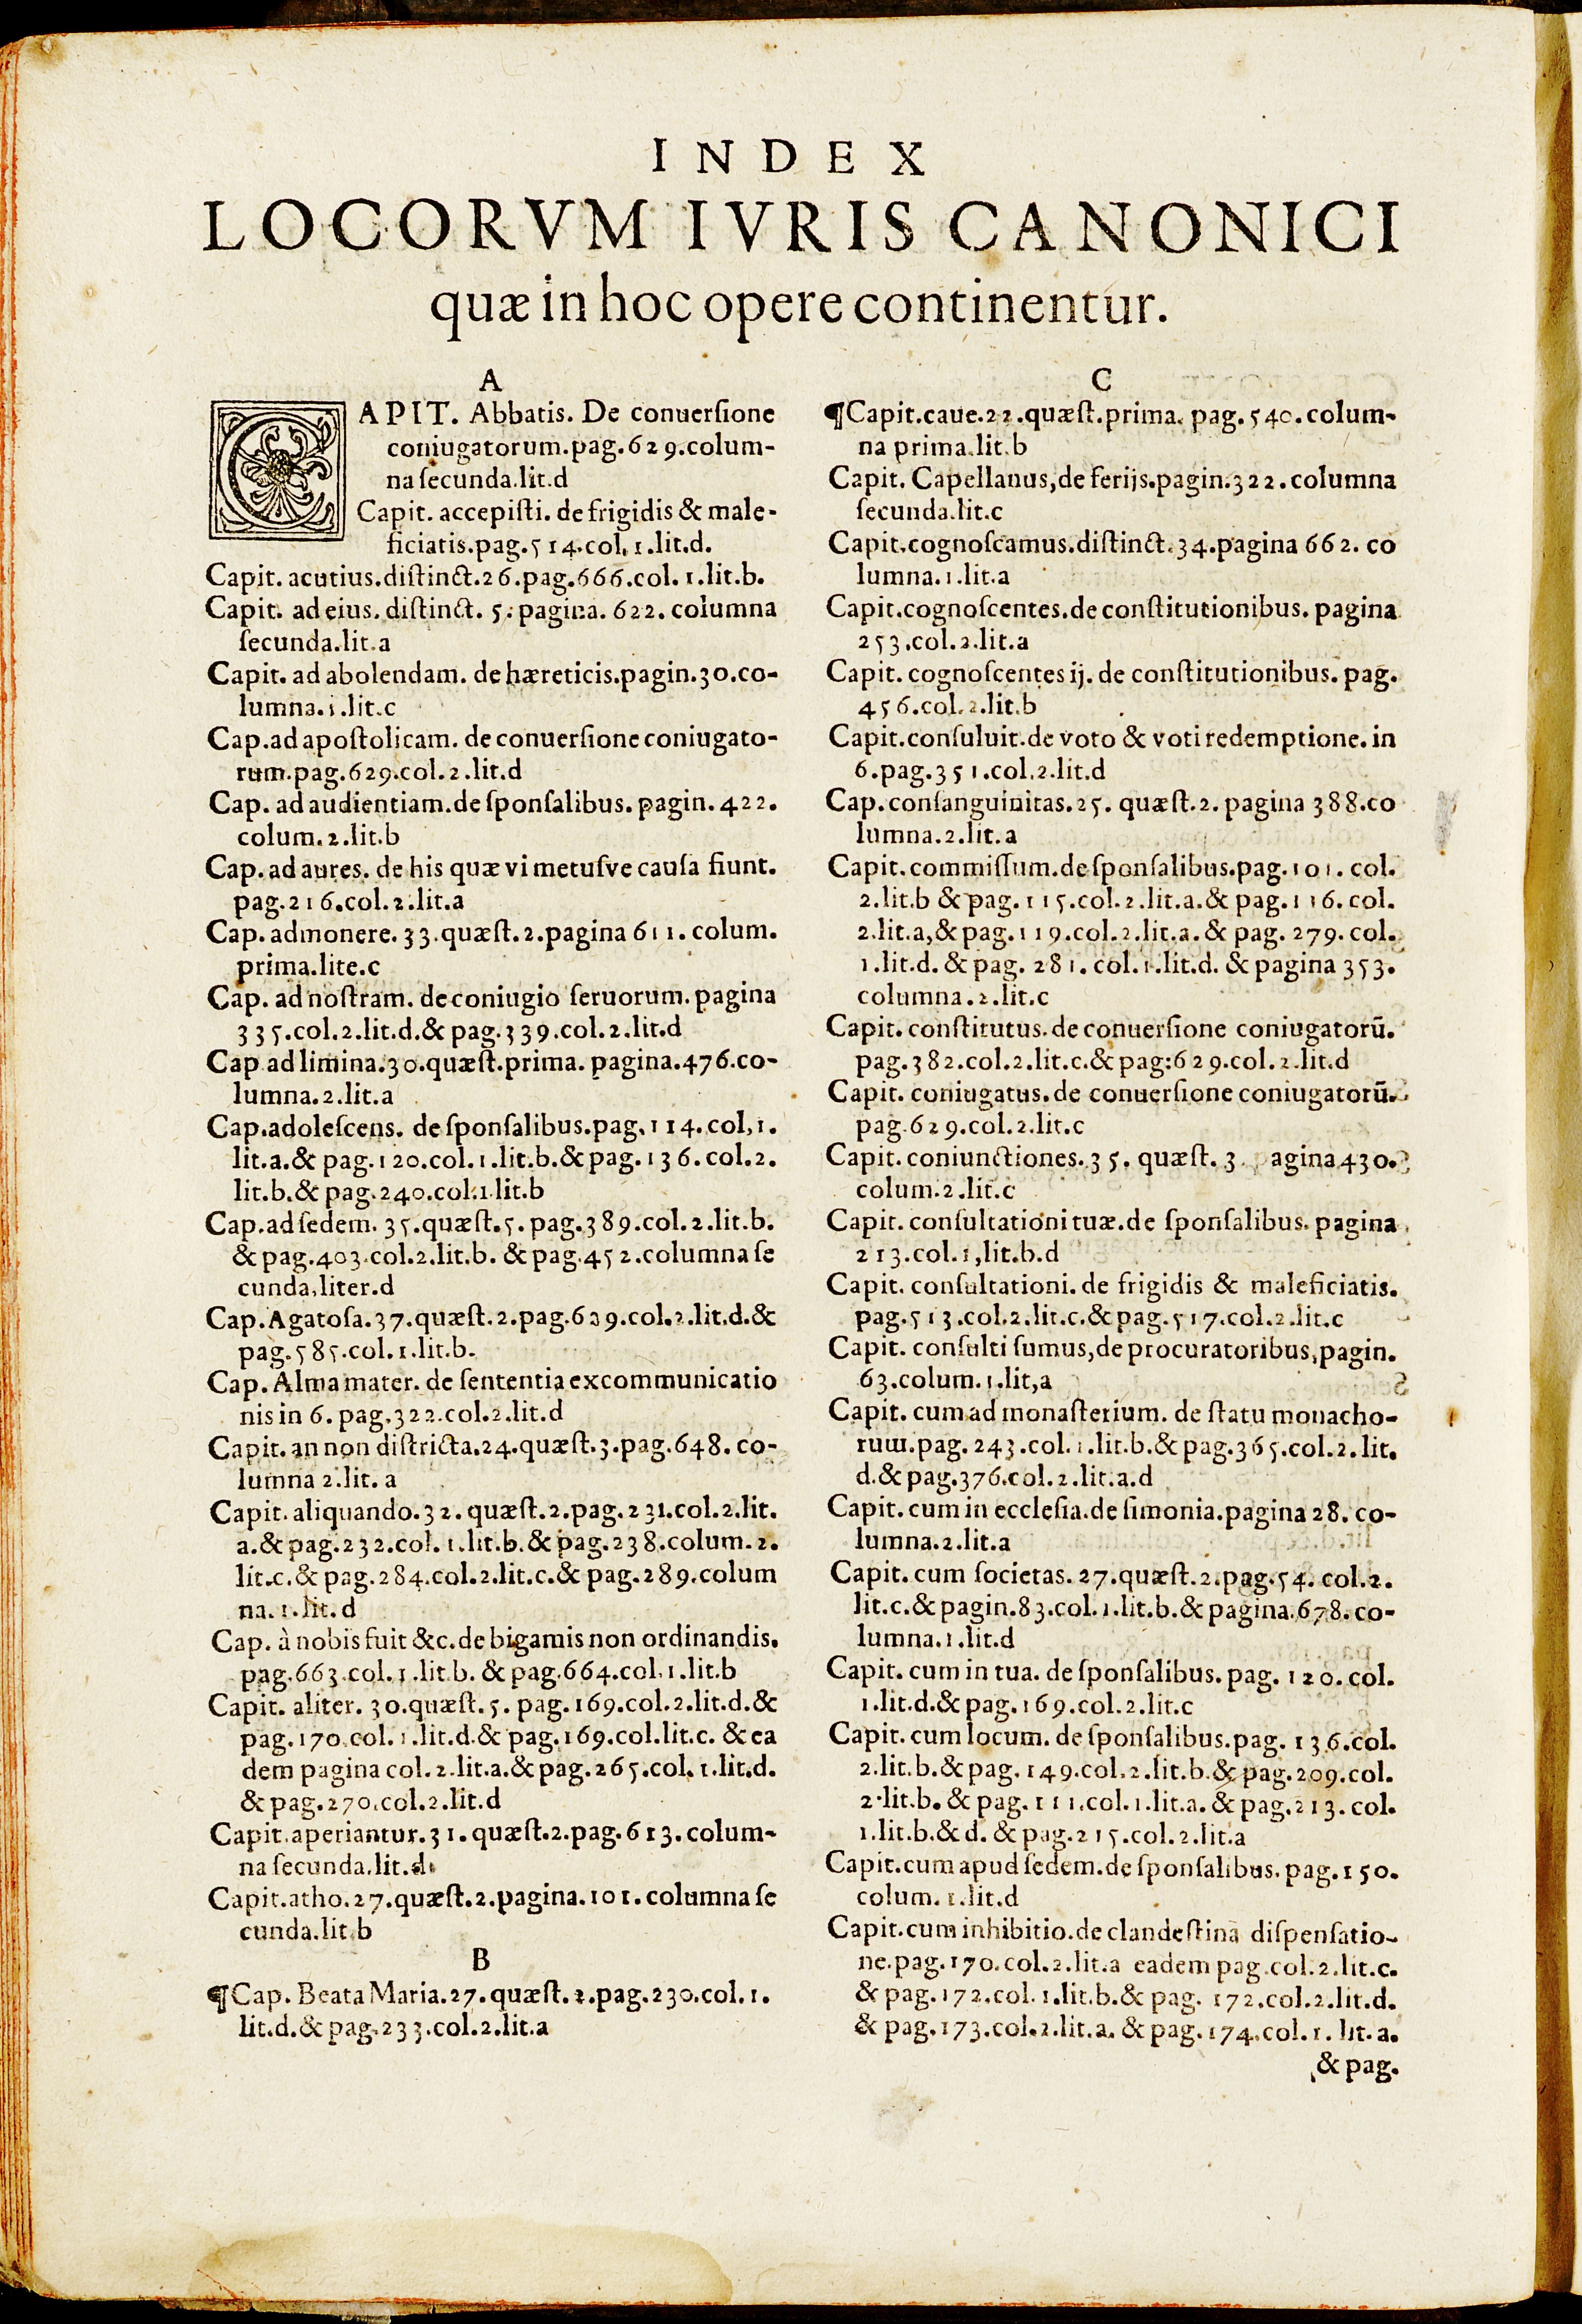 INDEX
LOCORVM IVRIS CANONICI
quæ in hoc opere continentur.
A
CAPIT. Abbatis. De conuerſione
coniugatorum.pag.629.colum-
na ſecunda.lit.d
Capit. accepiſti. de frigidis & male-
ficiatis.pag.514.col.1.lit.d.
Capit. acutius.diſtinct.26.pag.666.col.1.lit.b.
Capit. ad eius. diſtinct. 5. pagina. 622. columna
ſecunda.lit.a
Capit. ad abolendam. de hæreticis.pagin.30.co-
lumna.1.lit.c
Cap.ad apoſtolicam. de conuerſione coniugato-
rum.pag.629.col.2.lit.d
Cap. ad audientiam.de ſponſalibus. pagin. 422.
colum.2.lit.b
Cap. ad aures. de his quæ vi metuſve cauſa fiunt.
pag.216.col.2.lit.a
Cap. admonere.33.quæſt.2.pagina 611. colum.
prima.lite.c
Cap. ad noſtram. de coniugio ſeruorum. pagina
335.col.2.lit.d.& pag.339.col.2.lit.d
Cap ad limina.30.quæſt.prima. pagina.476.co-
lumna.2.lit.a
Cap.adoleſcens. de ſponſalibus.pag.114.col,1.
lit.a.& pag.120.col.1.lit.b.& pag.136.col.2.
lit.b.& pag.240.col.1.lit.b
Cap.ad ſedem. 35.quæſt.5. pag.389.col.2.lit.b.
& pag.403.col.2.lit.b. & pag.452.columna ſe
cunda,liter.d
Cap.Agatoſa.37.quæſt.2.pag.639.col.2.lit.d.&
pag.585.col.1.lit.b.
Cap. Alma mater. de ſententia excommunicatio
nis in 6. pag.322.col.2.lit.d
Capit. an non diſtricta.24.quæſt.3.pag.648. co-
lumna 2.lit. a
Capit. aliquando.32. quæſt.2.pag.231.col.2.lit.
a.& pag.232.col.1.lit.b.& pag.238.colum.2.
lit.c.& pag.284.col.2.lit.c.& pag.289.colum
na.1.lit.d
Cap. à nobis fuit &c.de bigamis non ordinandis.
pag.663.col.1.lit.b. & pag.664.col.1.lit.b
Capit. aliter. 30.quæſt.5. pag.169.col.2.lit.d.&
pag.170.col.1.lit.d.& pag.169.col.lit.c. & ea
dem pagina col.2.lit.a.& pag.265.col.1.lit.d.
& pag.270.col.2.lit.d
Capit.aperiantur.31. quæſt.2.pag.613.colum-
na ſecunda.lit.d.
Capit.atho.27.quæſt.2.pagina.101.columna ſe
cunda.lit.b
B
¶Cap. Beata Maria.27.quæſt.2.pag.230.col.1.
lit.d.& pag.233.col.2.lit.a
C
¶Capit.caue.22.quæſt.prima. pag.540.colum-
na prima.lit.b
Capit. Capellanus,de ferijs.pagin.322.columna
ſecunda.lit.c
Capit.cognoſcamus.diſtinct.34.pagina 662. co
lumna.1.lit.a
Capit.cognoſcentes.de conſtitutionibus. pagina
253.col.2.lit.a
Capit. cognoſcentes ij. de conſtitutionibus. pag.
456.col.2.lit.b
Capit.conſuluit.de voto & voti redemptione. in
6.pag.351.col.2.lit.d
Cap.conſanguinitas.25. quæſt.2. pagina 388.co
lumna.2.lit.a
Capit.commiſſum.de ſponſalibus.pag.101. col.
2.lit.b & pag.115.col.2.lit.a.& pag.116. col.
2.lit.a,& pag.119.col.2.lit.a.& pag. 279. col.
1.lit.d. & pag. 281. col.1.lit.d. & pagina 353.
columna.2.lit.c
Capit. conſtitutus. de conuerſione coniugatorū.
pag.382.col.2.lit.c.& pag:629.col.2.lit.d
Capit. coniugatus. de conuerſione coniugatorū.
pag.629.col.2.lit.c
Capit. coniunctiones.35. quæſt. 3 agina 430.
colum.2.lit.c
Capit. conſultationi tuæ.de ſponſalibus. pagina
213.col.1,lit.b.d
Capit. conſultationi. de frigidis & maleficiatis.
pag.513.col.2.lit.c.& pag.517.col.2.lit.c
Capit. conſulti ſumus,de procuratoribus,pagin.
63.colum.1.lit,a
Capit. cum ad monaſterium. de ſtatu monacho-
rum.pag.243.col.1.lit.b.& pag.365.col.2.lit.
d.& pag.376.col.2.lit.a.d
Capit. cum in eccleſia.de ſimonia.pagina 28. co-
lumna.2.lit.a
Capit. cum ſocietas. 27.quæſt.2.pag.54. col.2.
lit.c.& pagin.83.col.1.lit.b.& pagina.678.co-
lumna.1.lit.d
Capit. cum in tua. de ſponſalibus. pag. 120. col.
1.lit.d.& pag.169.col.2.lit.c
Capit. cum locum. de ſponſalibus.pag. 136.col.
2.lit.b.& pag.149.col.2.lit.b.& pag.209.col.
2.lit.b. & pag.111.col.1.lit.a. & pag.213. col.
1.lit.b.& d. & pag.215.col.2.lit.a
Capit.cum apud ſedem.de ſponſalibus. pag.150.
colum.1.lit.d
Capit.cum inhibitio.de clandeſtina diſpenſatio-
ne.pag.170.col.2.lit.a eadem pag.col.2.lit.c.
& pag.172.col.1.lit.b.& pag. 172.col.2.lit.d.
& pag.173.col.2.lit.a. & pag.174.col.1. lit.a.
& pag.